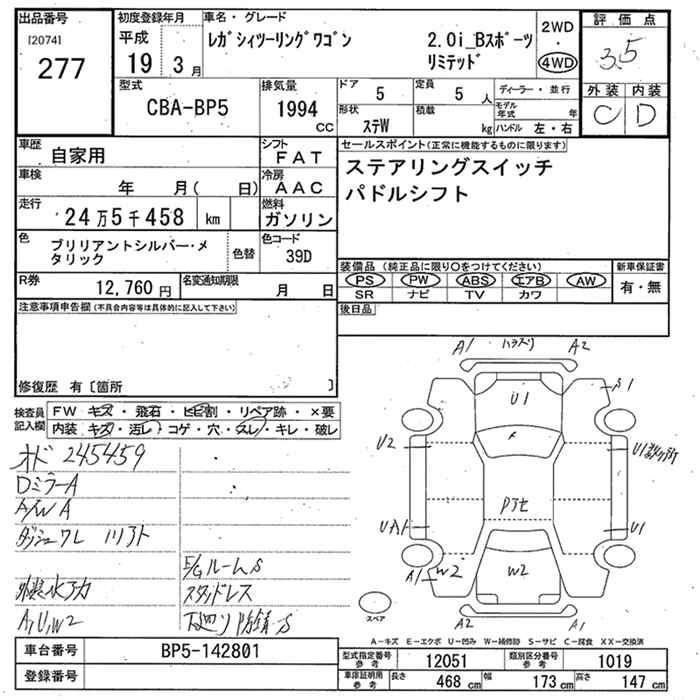 出品番号
[2074]
277
初度登録年月
平成
19 3月
車名・グレード
レガシィツーリングワゴン 2.0i_Bスポーツ
リミテッド
2WD
4WD
評価点
3.5
外装 内装
C D
型式
CBA-BP5
排気量
1994
CC
ドア 5
形状 ステW
定員 5 人
積載 kg
ディーラー・並行
モデル年式 年
ハンドル 左・右
車歴
自家用
シフト
FAT
車検
年 月( 日)
冷房
AAC
走行
24万5千458 km
燃料
ガソリン
色
ブリリアントシルバー・メ
タリック
色替
色コード
39D
R券
12,760 円
名変通知期限
月 日
セールスポイント(正常に機能するものに限ります)
ステアリングスイッチ
パドルシフト
装備品 (純正品に限り○をつけてください)
PS PW ABS エアB AW
SR ナビ TV カワ
新車保証書
有・無
後日品
注意事項申告欄(不具合内容等は具体的に記入して下さい)
修復歴 有〔箇所 〕
検査員
記入欄
FW キズ・飛石・ヒビ割・リペア跡・×要
内装 キズ・汚レ・コゲ・穴・スレ・キレ・破レ
オド 245459
Dミラー A
A/W A
ダッシュワレ ハリアト
E/Gルーム S
スタッドレス
A,U,W2
下廻り防錆 S
A1 A2
U1
S1
U2
U1
UA1
U1
A1
W2
W2
A2 A1
スペア
A−キズ E−エクボ U−凹み W−補修跡 S−サビ C−腐食 XX−交換済
車台番号
BP5-142801
登録番号
型式指定番号
参考
12051
類別区分番号
参考
1019
車庫証明用
参考
長さ 468 cm 幅 173 cm 高さ 147 cm